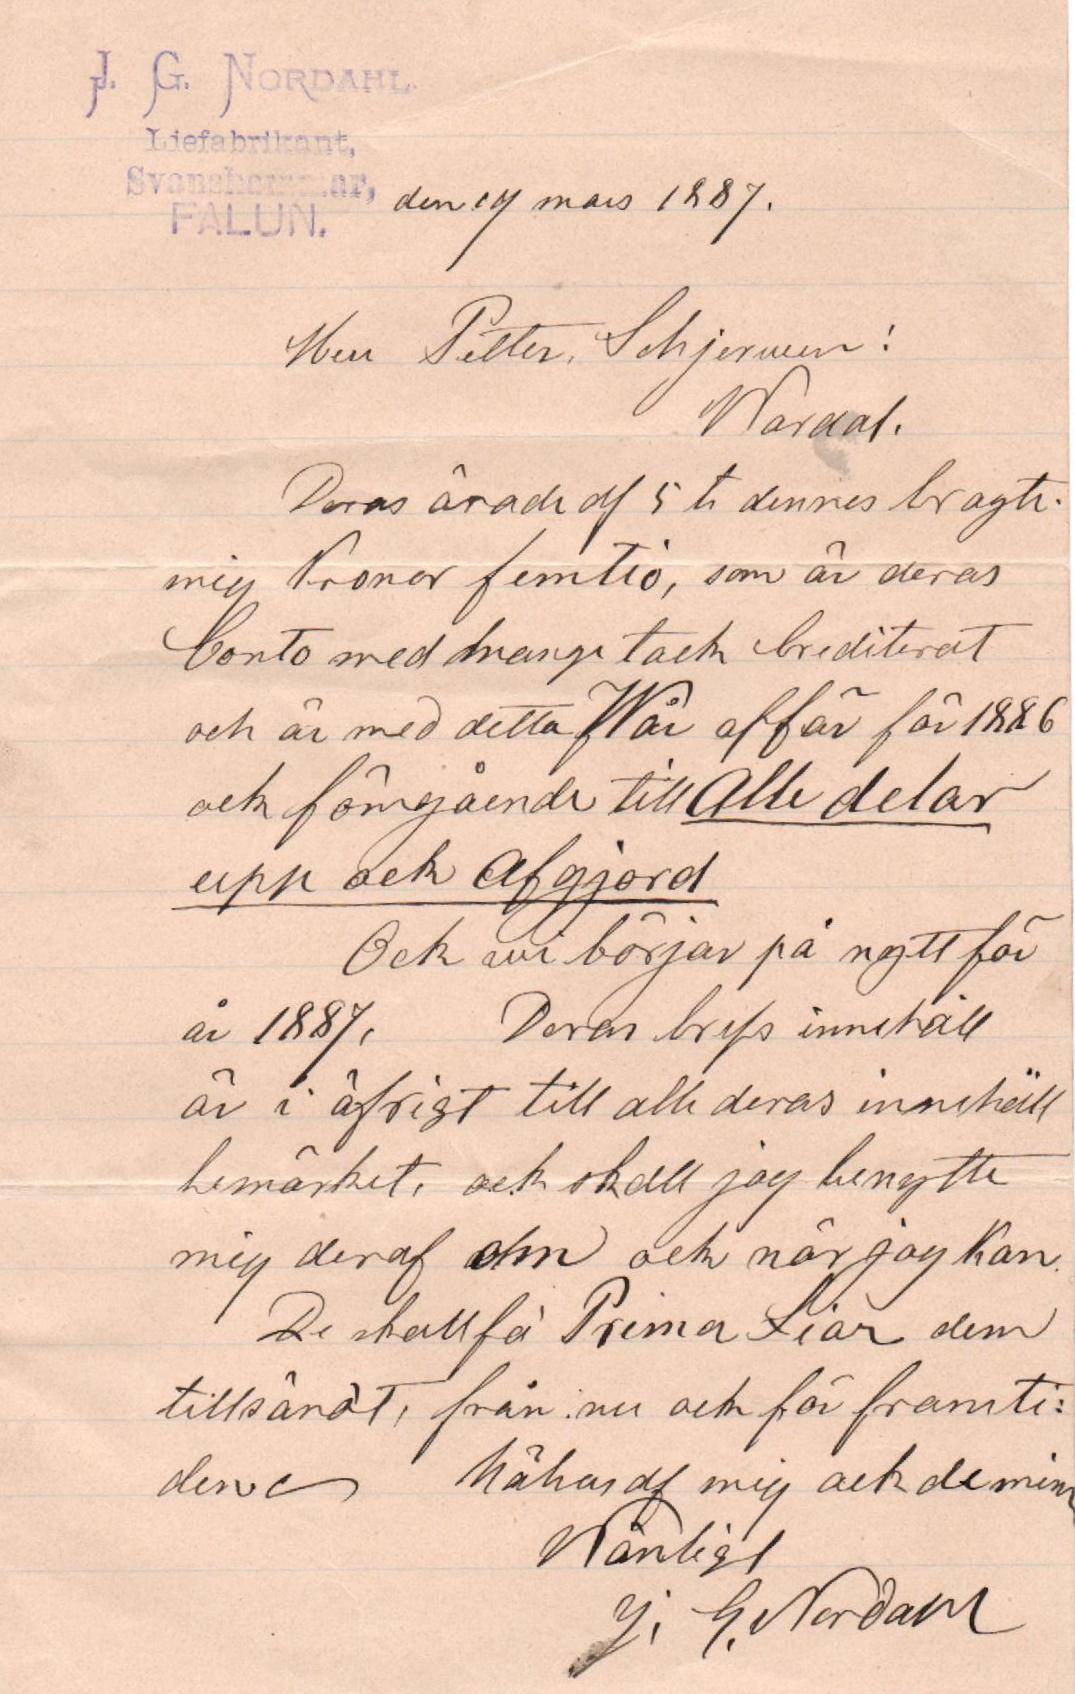 J. G. NORDAHL.
Liefabrikant,
Svanshammar,
FALUN.
den 19 mars 1887.
Herr Petter, Schjerwen!
Wardal.
Deras ärade af 5 te dennes bragte
mig Kronor femtio, som är deras
Conto med mange tack Crediterat
och är med detta Wår affär för 1886
ock förrgående till Alle delar
upp ock Afgjord
Ock wi börjar på nytt för
år 1887. Deras brefs innehåll
är i öfrigt till alle deras innehåll
bemärket, ock skall jag benytte
mig deraf om ock när jag Kan.
De skall få Prima Liar dem
tillsändt, från nu ock för framti:
den Hälsas af mig ock de mina
Wänligt
J. G. Nordahl